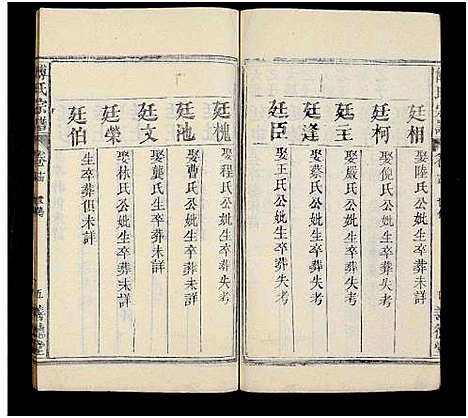 廷相
娶陸氏公妣生卒葬失考
廷柯
娶倪氏公妣生卒葬失考
廷王
娶嚴氏公妣生卒葬失考
廷逢
娶蔡氏公妣生卒葬失考
廷臣
娶王氏公妣生卒葬失考
廷槐
娶程氏公妣生卒葬失考
廷池
娶曹氏公妣生卒葬未詳
廷文
娶龔氏生卒葬未詳
廷榮
娶林氏公妣生卒葬未詳
廷伯
生卒葬俱未詳
傅氏宗譜
卷
五
善德堂